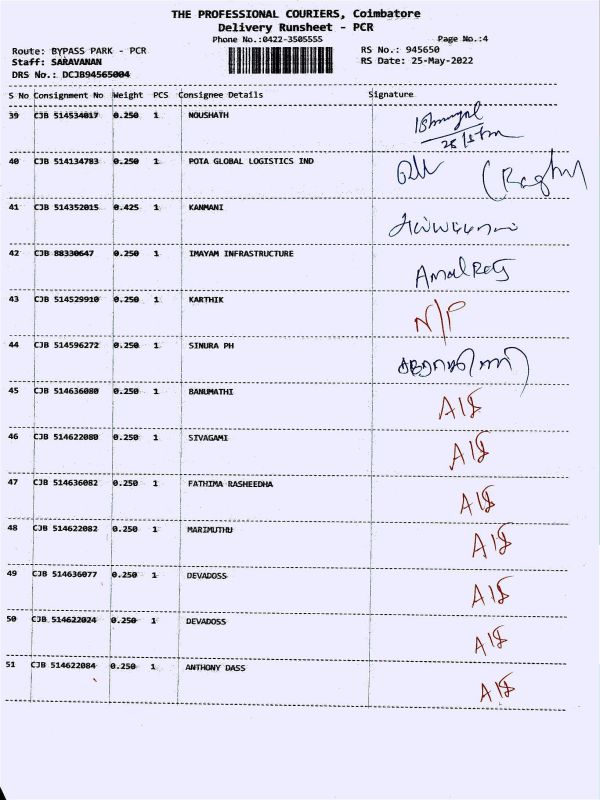 THE PROFESSIONAL COURIERS, Coimbatore
Delivery Runsheet - PCR
Phone No.:0422-3505555 Page No.:4
Route: BYPASS PARK - PCR RS No.: 945650
Staff: SARAVANAN RS Date: 25-May-2022
DRS No.: DCJB94565004
S No Consignment No Weight PCS Consignee Details Signature
39 CJB 514534017 0.250 1 NOUSHATH
40 CJB 514134783 0.250 1 POTA GLOBAL LOGISTICS IND
41 CJB 514352015 0.425 1 KANMANI
42 CJB 88330647 0.250 1 IMAYAM INFRASTRUCTURE
43 CJB 514529910 0.250 1 KARTHIK N/P
44 CJB 514596272 0.250 1 SINURA PH
45 CJB 514636080 0.250 1 BANUMATHI
46 CJB 514622080 0.250 1 SIVAGAMI
47 CJB 514636082 0.250 1 FATHIMA RASHEEDHA
48 CJB 514622082 0.250 1 MARIMUTHU
49 CJB 514636077 0.250 1 DEVADOSS
50 CJB 514622024 0.250 1 DEVADOSS
51 CJB 514622084 0.250 1 ANTHONY DASS